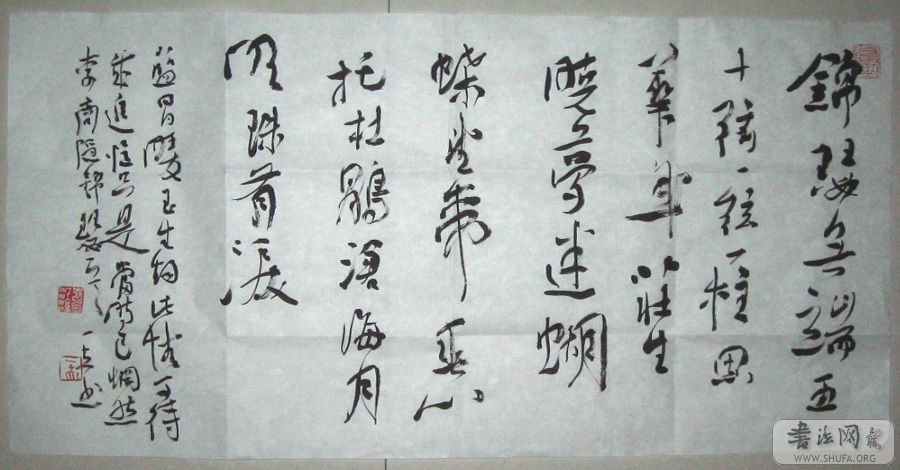 錦瑟無端五
十弦一弦一柱思
華年莊生
曉夢迷蝴
蝶望帝春心
托杜鵑滄海月
明珠有淚
藍田日暖玉生烟此情可待
成追憶只是當時已惘然
李商隱錦瑟
書法网
WWW.SHUFA.ORG